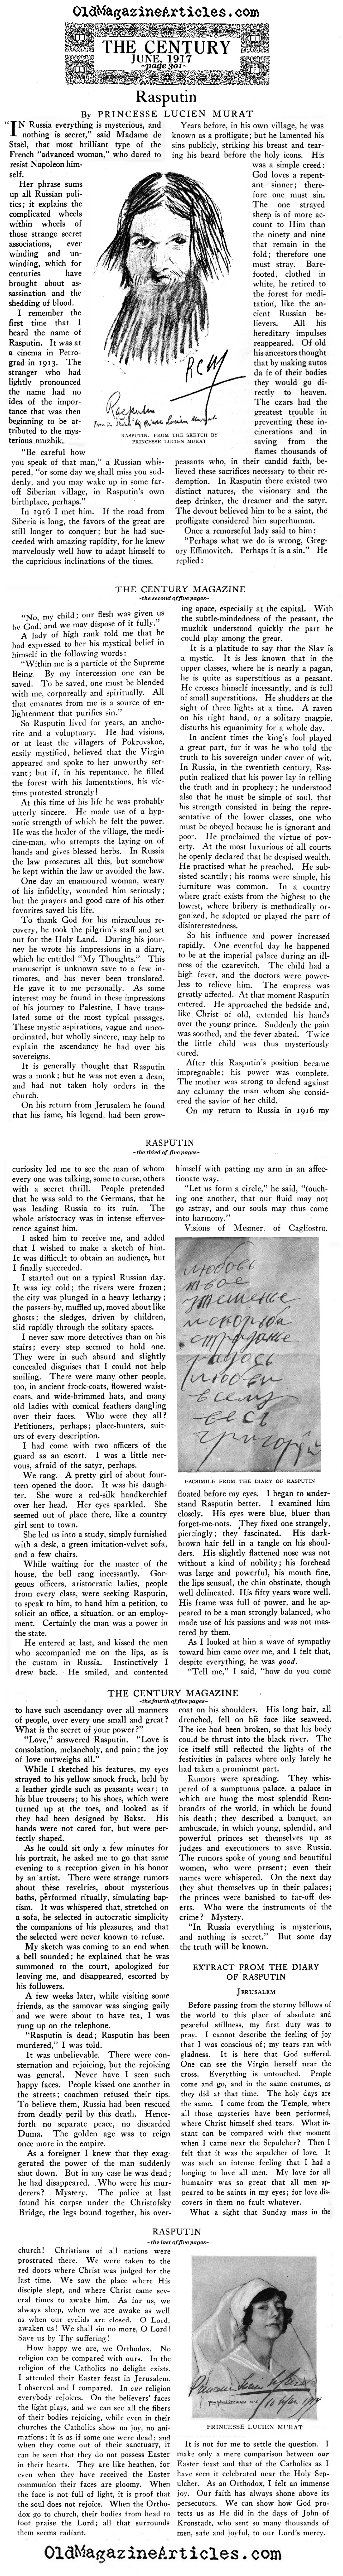 OldMagazineArticles.com
THE CENTURY
JUNE, 1917
~page 301~
Rasputin
By PRINCESSE LUCIEN MURAT
"IN Russia everything is mysterious, and
nothing is secret," said Madame de
Staël, that most brilliant type of the
French "advanced woman," who dared to
resist Napoleon him-
self.
Her phrase sums
up all Russian poli-
tics; it explains the
complicated wheels
within wheels of
those strange secret
associations, ever
winding and un-
winding, which for
centuries have
brought about as-
sassination and the
shedding of blood.
I remember the
first time that I
heard the name of
Rasputin. It was at
a cinema in Petro-
grad in 1913. The
stranger who had
lightly pronounced
the name had no
idea of the impor-
tance that was then
beginning to be at-
tributed to the mys-
terious muzhik.
"Be careful how
you speak of that man," a Russian whis-
pered, "or some day we shall miss you sud-
denly, and you may wake up in some far-
off Siberian village, in Rasputin's own
birthplace, perhaps."
In 1916 I met him. If the road from
Siberia is long, the favors of the great are
still longer to conquer; but he had suc-
ceeded with amazing rapidity, for he knew
marvelously well how to adapt himself to
the capricious inclinations of the times.
RASPUTIN, FROM THE SKETCH BY
PRINCESSE LUCIEN MURAT
Years before, in his own village, he was
known as a profligate; but he lamented his
sins publicly, striking his breast and tear-
ing his beard before the holy icons. His
was a simple creed:
God loves a repent-
ant sinner; there-
fore one must sin.
The one strayed
sheep is of more ac-
count to Him than
the ninety and nine
that remain in the
fold; therefore one
must stray. Bare-
footed, clothed in
white, he retired to
the forest for medi-
tation, like the an-
cient Russian be-
lievers. All his
hereditary impulses
reappeared. Of old
his ancestors thought
that by making autos
da fe of their bodies
they would go di-
rectly to heaven.
The czars had the
greatest trouble in
preventing these in-
cinerations and in
saving from the
flames thousands of
peasants who, in their candid faith, be-
lieved these sacrifices necessary to their re-
demption. In Rasputin there existed two
distinct natures, the visionary and the
deep drinker, the dreamer and the satyr.
The devout believed him to be a saint, the
profligate considered him superhuman.
Once a remorseful lady said to him:
"Perhaps what we do is wrong, Greg-
ory Effimovitch. Perhaps it is a sin." He
replied:
THE CENTURY MAGAZINE
~the second of five pages~
"No, my child; our flesh was given us
by God, and we may dispose of it fully."
A lady of high rank told me that he
had expressed to her his mystical belief in
himself in the following words:
"Within me is a particle of the Supreme
Being. By my intercession one can be
saved. To be saved, one must be blended
with me, corporeally and spiritually. All
that emanates from me is a source of en-
lightenment that purifies sin."
So Rasputin lived for years, an ancho-
rite and a voluptuary. He had visions,
or at least the villagers of Pokrovskoe,
easily mystified, believed that the Virgin
appeared and spoke to her unworthy ser-
vant; but if, in his repentance, he filled
the forest with his lamentations, his vic-
tims protested strongly!
At this time of his life he was probably
utterly sincere. He made use of a hyp-
notic strength of which he felt the power.
He was the healer of the village, the medi-
cine-man, who attempts the laying on of
hands and gives blessed herbs. In Russia
the law prosecutes all this, but somehow
he kept within the law or avoided the law.
One day an enamoured woman, weary
of his infidelity, wounded him seriously;
but the prayers and good care of his other
favorites saved his life.
To thank God for his miraculous re-
covery, he took the pilgrim's staff and set
out for the Holy Land. During his jour-
ney he wrote his impressions in a diary,
which he entitled "My Thoughts." This
manuscript is unknown save to a few in-
timates, and has never been translated.
He gave it to me personally. As some
interest may be found in these impressions
of his journey to Palestine, I have trans-
lated some of the most typical passages.
These mystic aspirations, vague and unco-
ordinated, but wholly sincere, may help to
explain the ascendancy he had over his
sovereigns.
It is generally thought that Rasputin
was a monk; but he was not even a dean,
and had not taken holy orders in the
church.
On his return from Jerusalem he found
that his fame, his legend, had been grow-
ing apace, especially at the capital. With
the subtle-mindedness of the peasant, the
muzhik understood quickly the part he
could play among the great.
It is a platitude to say that the Slav is
a mystic. It is less known that in the
upper classes, where he is nearly a pagan,
he is quite as superstitious as a peasant.
He crosses himself incessantly, and is full
of small superstitions. He shudders at the
sight of three lights at a time. A raven
on his right hand, or a solitary magpie,
disturbs his equanimity for a whole day.
In ancient times the king's fool played
a great part, for it was he who told the
truth to his sovereign under cover of wit.
In Russia, in the twentieth century, Ras-
putin realized that his power lay in telling
the truth and in prophecy; he understood
also that he must be simple of soul, and
that his strength consisted in being the repre-
sentative of the lower classes, one who
must be obeyed because he is ignorant and
poor. He proclaimed the virtue of pov-
erty. At the most luxurious of all courts
he openly declared that he despised wealth.
He practised what he preached. He sub-
sisted scantily; his rooms were simple, his
furniture was common. In a country
where graft exists from the highest to the
lowest, where bribery is methodically or-
ganized, he adopted or played the part of
disinterestedness.
So his influence and power increased
rapidly. One eventful day he happened
to be at the imperial palace during an ill-
ness of the czarevitch. The child had a
high fever, and the doctors were power-
less to relieve him. The empress was
greatly affected. At that moment Rasputin
entered. He approached the bedside and,
like Christ of old, extended his hands
over the young prince. Suddenly the pain
was soothed, and the fever abated. Twice
the little child was thus mysteriously
cured.
After this Rasputin's position became
impregnable; his power was complete.
The mother was strong to defend against
any calumny the man whom she consid-
ered the savior of her child.
On my return to Russia in 1916 my
RASPUTIN
~the third of five pages~
curiosity led me to see the man of whom
every one was talking, some to curse, others
with a secret thrill. People pretended
that he was sold to the Germans, that he
was leading Russia to its ruin. The
whole aristocracy was in intense efferves-
cence against him.
I asked him to receive me, and added
that I wished to make a sketch of him.
It was difficult to obtain an audience, but
I finally succeeded.
I started out on a typical Russian day.
It was icy cold; the rivers were frozen;
the city was plunged in a heavy lethargy;
the passers-by, muffled up, moved about like
ghosts; the sledges, driven by children,
slid rapidly through the solitary spaces.
I never saw more detectives than on his
stairs; every step seemed to hold one.
They were in such absurd and slightly
concealed disguises that I could not help
smiling. There were many other people,
too, in ancient frock-coats, flowered waist-
coats, and wide-brimmed hats, and many
old ladies with comical feathers dangling
over their faces. Who were they all?
Petitioners, perhaps; place-hunters, suit-
ors of every description.
I had come with two officers of the
guard as an escort. I was a little ner-
vous, afraid of the satyr, perhaps.
We rang. A pretty girl of about four-
teen opened the door. It was his daugh-
ter. She wore a red-silk handkerchief
over her head. Her eyes sparkled. She
seemed out of place there, like a country
girl sent to town.
She led us into a study, simply furnished
with a desk, a green imitation-velvet sofa,
and a few chairs.
While waiting for the master of the
house, the bell rang incessantly. Gor-
geous officers, aristocratic ladies, people
from every class, were seeking Rasputin,
to speak to him, to hand him a petition, to
solicit an office, a situation, or an employ-
ment. Certainly the man was a power in
the state.
He entered at last, and kissed the men
who accompanied me on the lips, as is
the custom in Russia. Instinctively I
drew back. He smiled, and contented
himself with patting my arm in an affec-
tionate way.
"Let us form a circle," he said, "touch-
ing one another, that our fluid may not
go astray, and our souls may thus come
into harmony."
Visions of Mesmer, of Cagliostro,
FACSIMILE FROM THE DIARY OF RASPUTIN
floated before my eyes. I began to under-
stand Rasputin better. I examined him
closely. His eyes were blue, bluer than
forget-me-nots. They fixed one strangely,
piercingly; they fascinated. His dark-
brown hair fell in a tangle on his shoul-
ders. His slightly flattened nose was not
without a kind of nobility; his forehead
was large and powerful, his mouth fine,
the lips sensual, the chin obstinate, though
well delineated. His fifty years wore well.
His frame was full of power, and he ap-
peared to be a man strongly balanced, who
made use of his passions and was not mas-
tered by them.
As I looked at him a wave of sympathy
toward him came over me, and I felt that,
despite everything, he was good.
"Tell me," I said, "how do you come
THE CENTURY MAGAZINE
~the fourth of five pages~
to have such ascendancy over all manners
of people, over every one small and great?
What is the secret of your power?"
"Love," answered Rasputin. "Love is
consolation, melancholy, and pain; the joy
of love outweighs all."
While I sketched his features, my eyes
strayed to his yellow smock frock, held by
a leather girdle such as peasants wear; to
his blue trousers; to his shoes, which were
turned up at the toes, and looked as if
they had been designed by Bakst. His
hands were not cared for, but were per-
fectly shaped.
As he could sit only a few minutes for
his portrait, he asked me to go that same
evening to a reception given in his honor
by an artist. There were strange rumors
about these revelries, about mysterious
baths, performed ritually, simulating bap-
tism. It was whispered that, stretched on
a sofa, he selected in autocratic simplicity
the companions of his pleasures, and that
the selected were never known to refuse.
My sketch was coming to an end when
a bell sounded; he explained that he was
summoned to the court, apologized for
leaving me, and disappeared, escorted by
his followers.
A few weeks later, while visiting some
friends, as the samovar was singing gaily
and we were about to have tea, I was
rung up on the telephone.
"Rasputin is dead; Rasputin has been
murdered," I was told.
It was unbelievable. There were con-
sternation and rejoicing, but the rejoicing
was general. Never have I seen such
happy faces. People kissed one another in
the streets; coachmen refused their tips.
To believe them, Russia had been rescued
from deadly peril by this death. Hence-
forth no separate peace, no discarded
Duma. The golden age was to reign
once more in the empire.
As a foreigner I knew that they exag-
gerated the power of the man suddenly
shot down. But in any case he was dead;
he had disappeared. Who were his mur-
derers? Mystery. The police at last
found his corpse under the Christofsky
Bridge, the legs bound together, his over-
coat on his shoulders. His long hair, all
drenched, fell on his face like seaweed.
The ice had been broken, so that his body
could be thrust into the black river. The
ice itself still reflected the lights of the
festivities in palaces where only lately he
had taken a prominent part.
Rumors were spreading. They whis-
pered of a sumptuous palace, a palace in
which are hung the most splendid Rem-
brandts of the world, in which he found
his death; they described a banquet, an
ambuscade, in which young, splendid, and
powerful princes set themselves up as
judges and executioners to save Russia.
The rumors spoke of young and beautiful
women, who were present; even their
names were whispered. On the next day
they shut themselves up in their palaces;
the princes were banished to far-off des-
erts. Who were the instruments of the
crime? Mystery.
"In Russia everything is mysterious,
and nothing is secret." But some day
the truth will be known.
EXTRACT FROM THE DIARY
OF RASPUTIN
JERUSALEM
Before passing from the stormy billows of
the world to this place of absolute and
peaceful stillness, my first duty was to
pray. I cannot describe the feeling of joy
that I was conscious of; my tears ran with
gladness. It is here that God suffered.
One can see the Virgin herself near the
cross. Everything is untouched. People
come and go, and in the same costumes, as
they did at that time. The holy days are
the same. I came from the Temple, where
all those mysteries have been performed,
where Christ himself shed tears. What in-
stant can be compared with that moment
when I came near the Sepulcher? Then I
felt that it was the sepulcher of love. It
was such an intense feeling that I had a
longing to love all men. My love for all
humanity was so great that all men ap-
peared to be saints in my eyes; for love dis-
covers in them no fault whatever.
What a sight that Sunday mass in the
RASPUTIN
~the last of five pages~
church! Christians of all nations were
prostrated there. We were taken to the
red doors where Christ was judged for the
last time. We saw the place where His
disciple slept, and where Christ came sev-
eral times to awake him. As for us, we
always sleep, when we are awake as well
as when our eyelids are closed. O Lord,
awaken us! We shall sin no more, O Lord!
Save us by Thy suffering!
How happy we are, we Orthodox. No
religion can be compared with ours. In the
religion of the Catholics no delight exists.
I attended their Easter feast in Jerusalem.
I observed and I compared. In our religion
everybody rejoices. On the believers' faces
the light plays, and we can see all the fibers
of their bodies rejoicing, while even in their
churches the Catholics show no joy, no ani-
mations; it is as if some one were dead: and
when they come out of their sanctuary, it
can be seen that they do not possess Easter
in their hearts. They are like heathen, for
even when they have received the Easter
communion their faces are gloomy. When
the face is not full of light, it is proof that
the soul does not rejoice. When the Ortho-
dox go to church, their bodies from head to
foot praise the Lord; all that surrounds
them seems radiant.
PRINCESSE LUCIEN MURAT
It is not for me to settle the question. I
make only a mere comparison between our
Easter feast and that of the Catholics as I
have seen it celebrated near the Holy Sep-
ulcher. As an Orthodox, I felt an immense
joy. Our faith has always shone above its
persecutors. We can show how God pro-
tects us as He did in the days of John of
Kronstadt, who sent so many thousands of
men, safe and joyful, to our Lord's mercy.
OldMagazineArticles.com